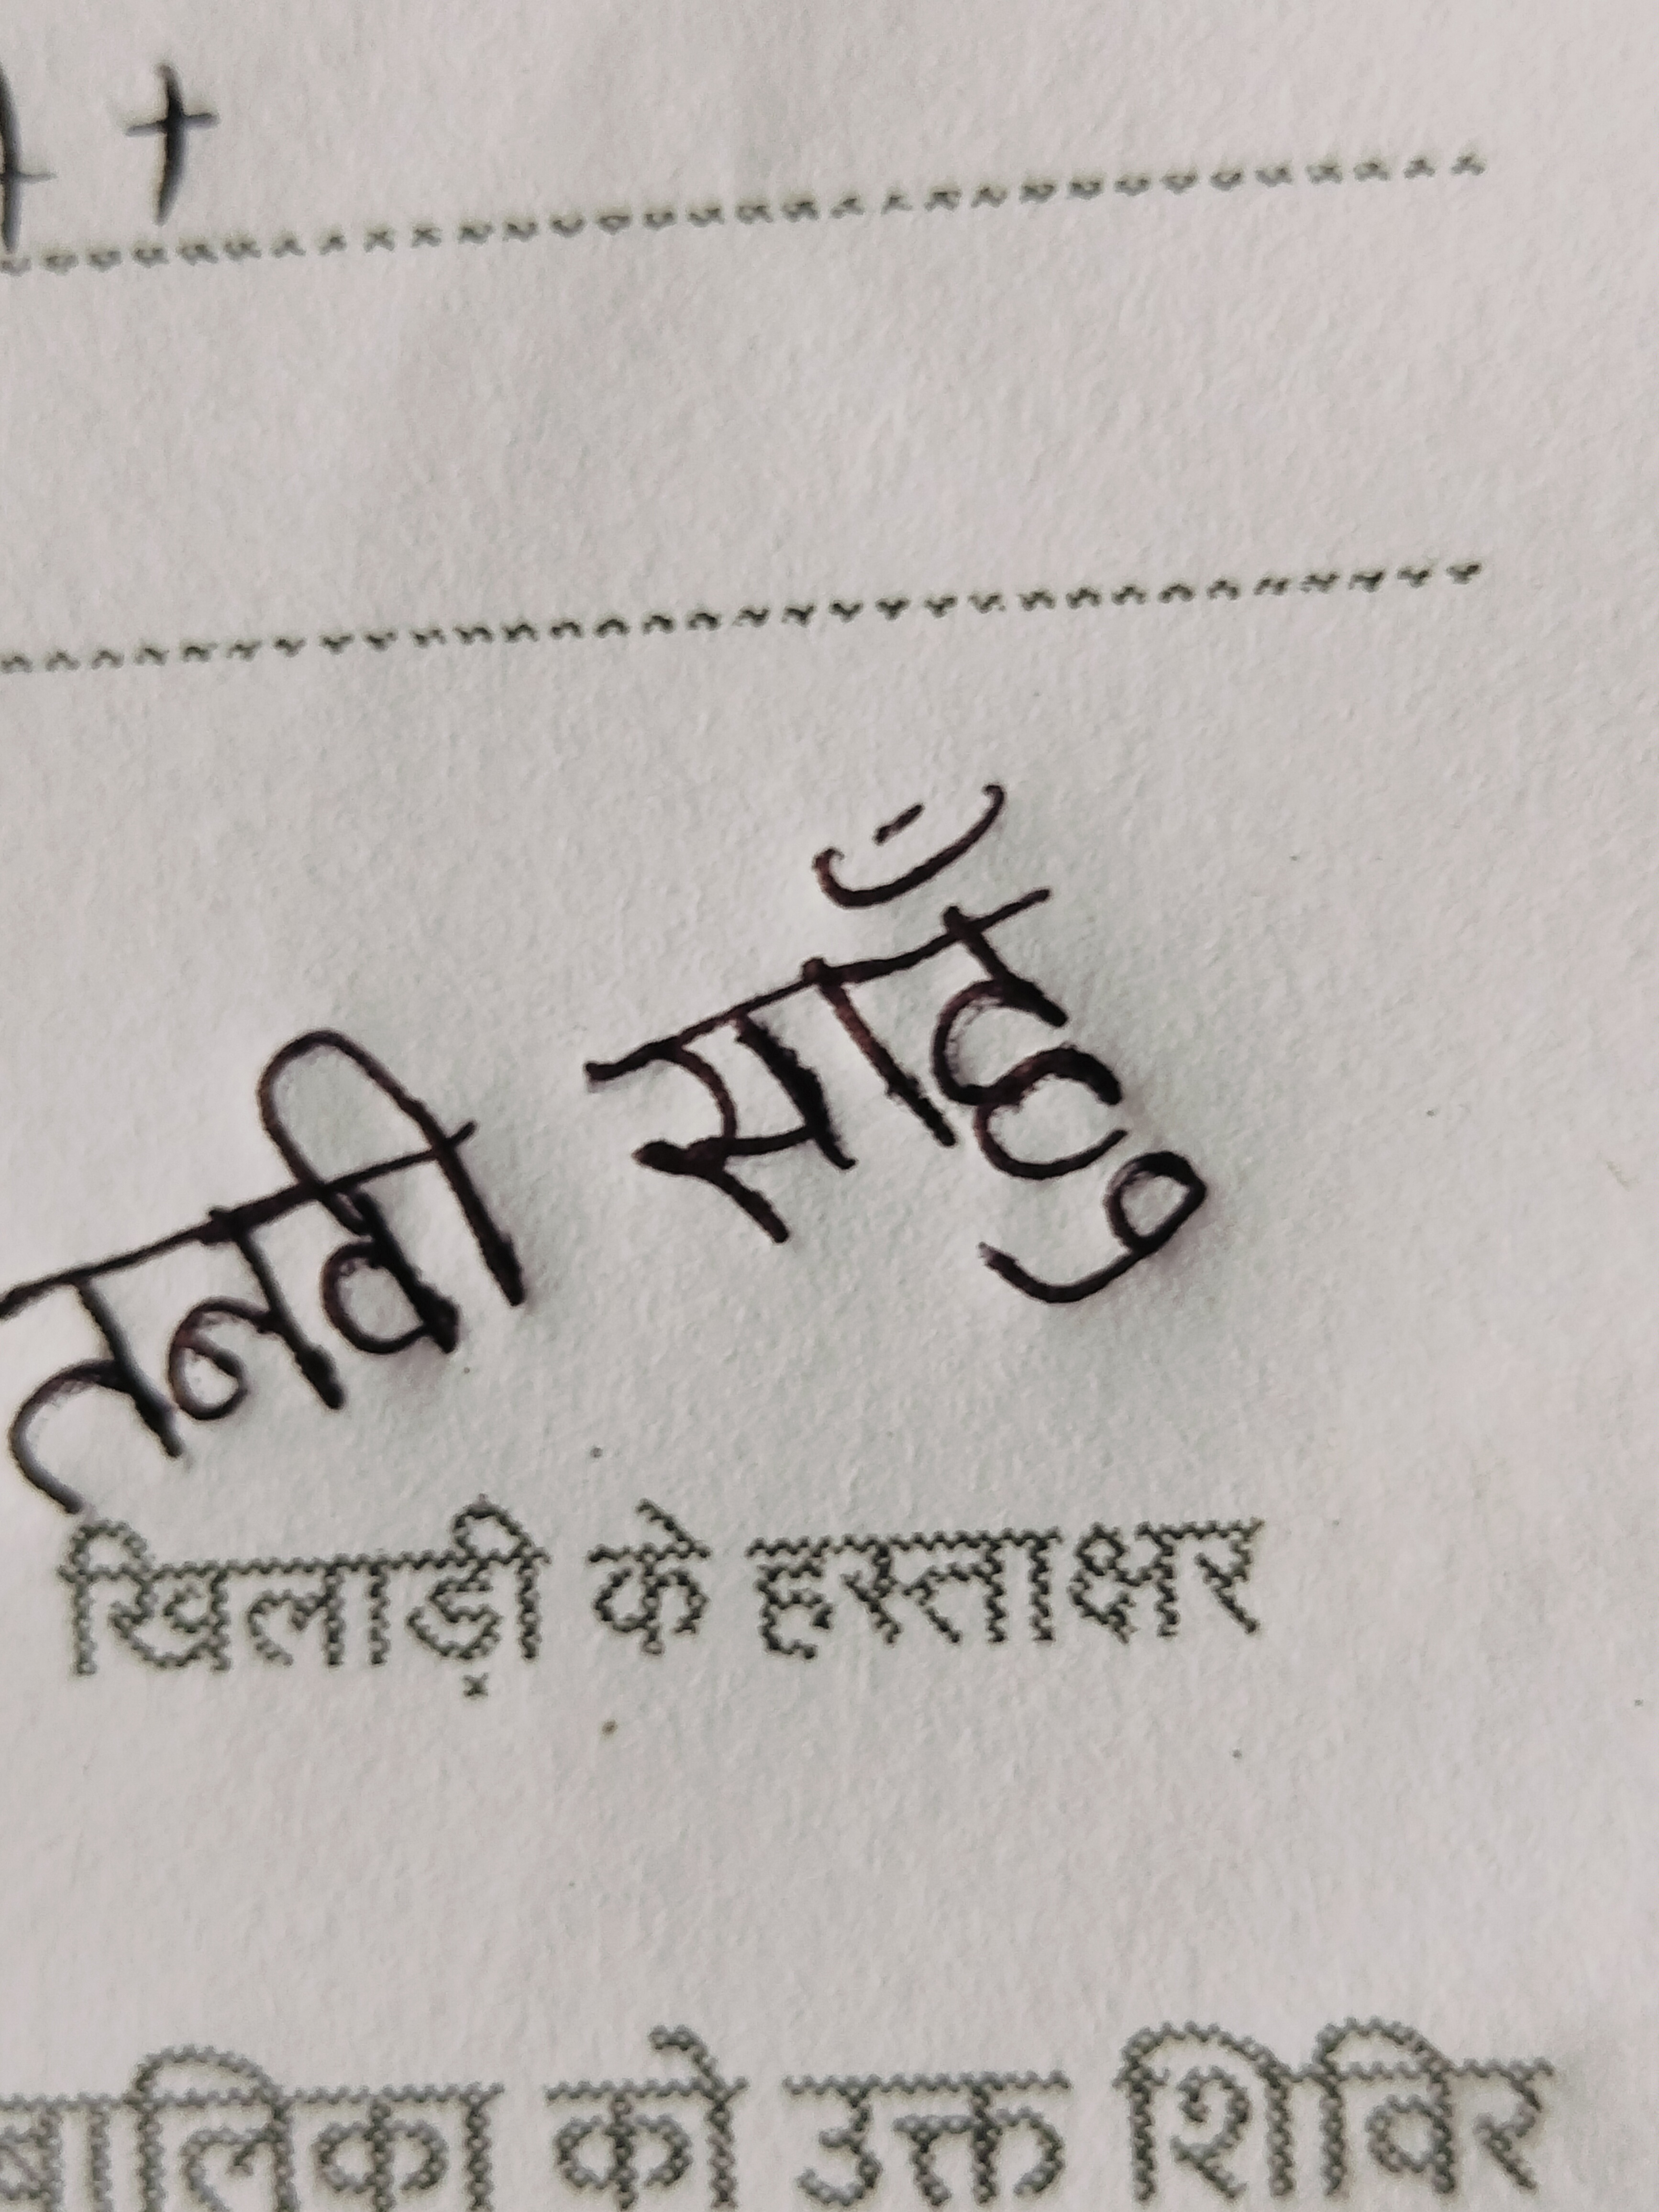 +
तनवी साहुँ
खिलाड़ी के हस्ताक्षर
बालिका को उक्त शिविर